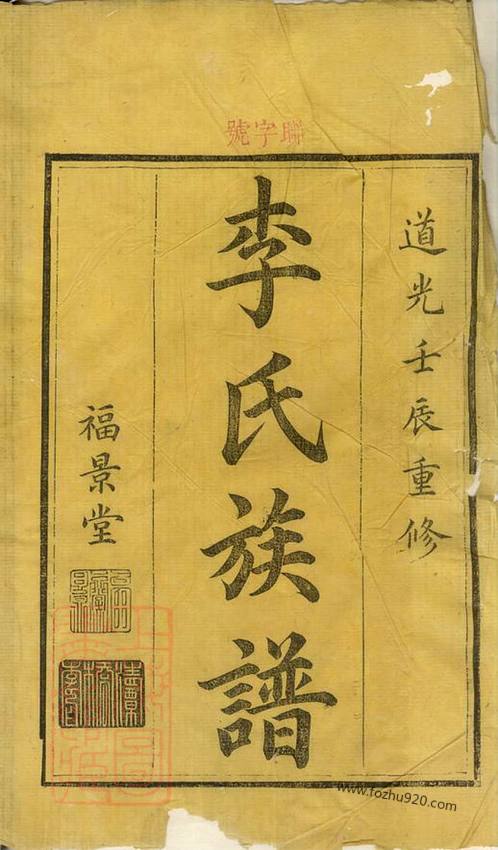 聯字號
道光壬辰重修
李氏族譜
福景堂
www.fozhu920.com